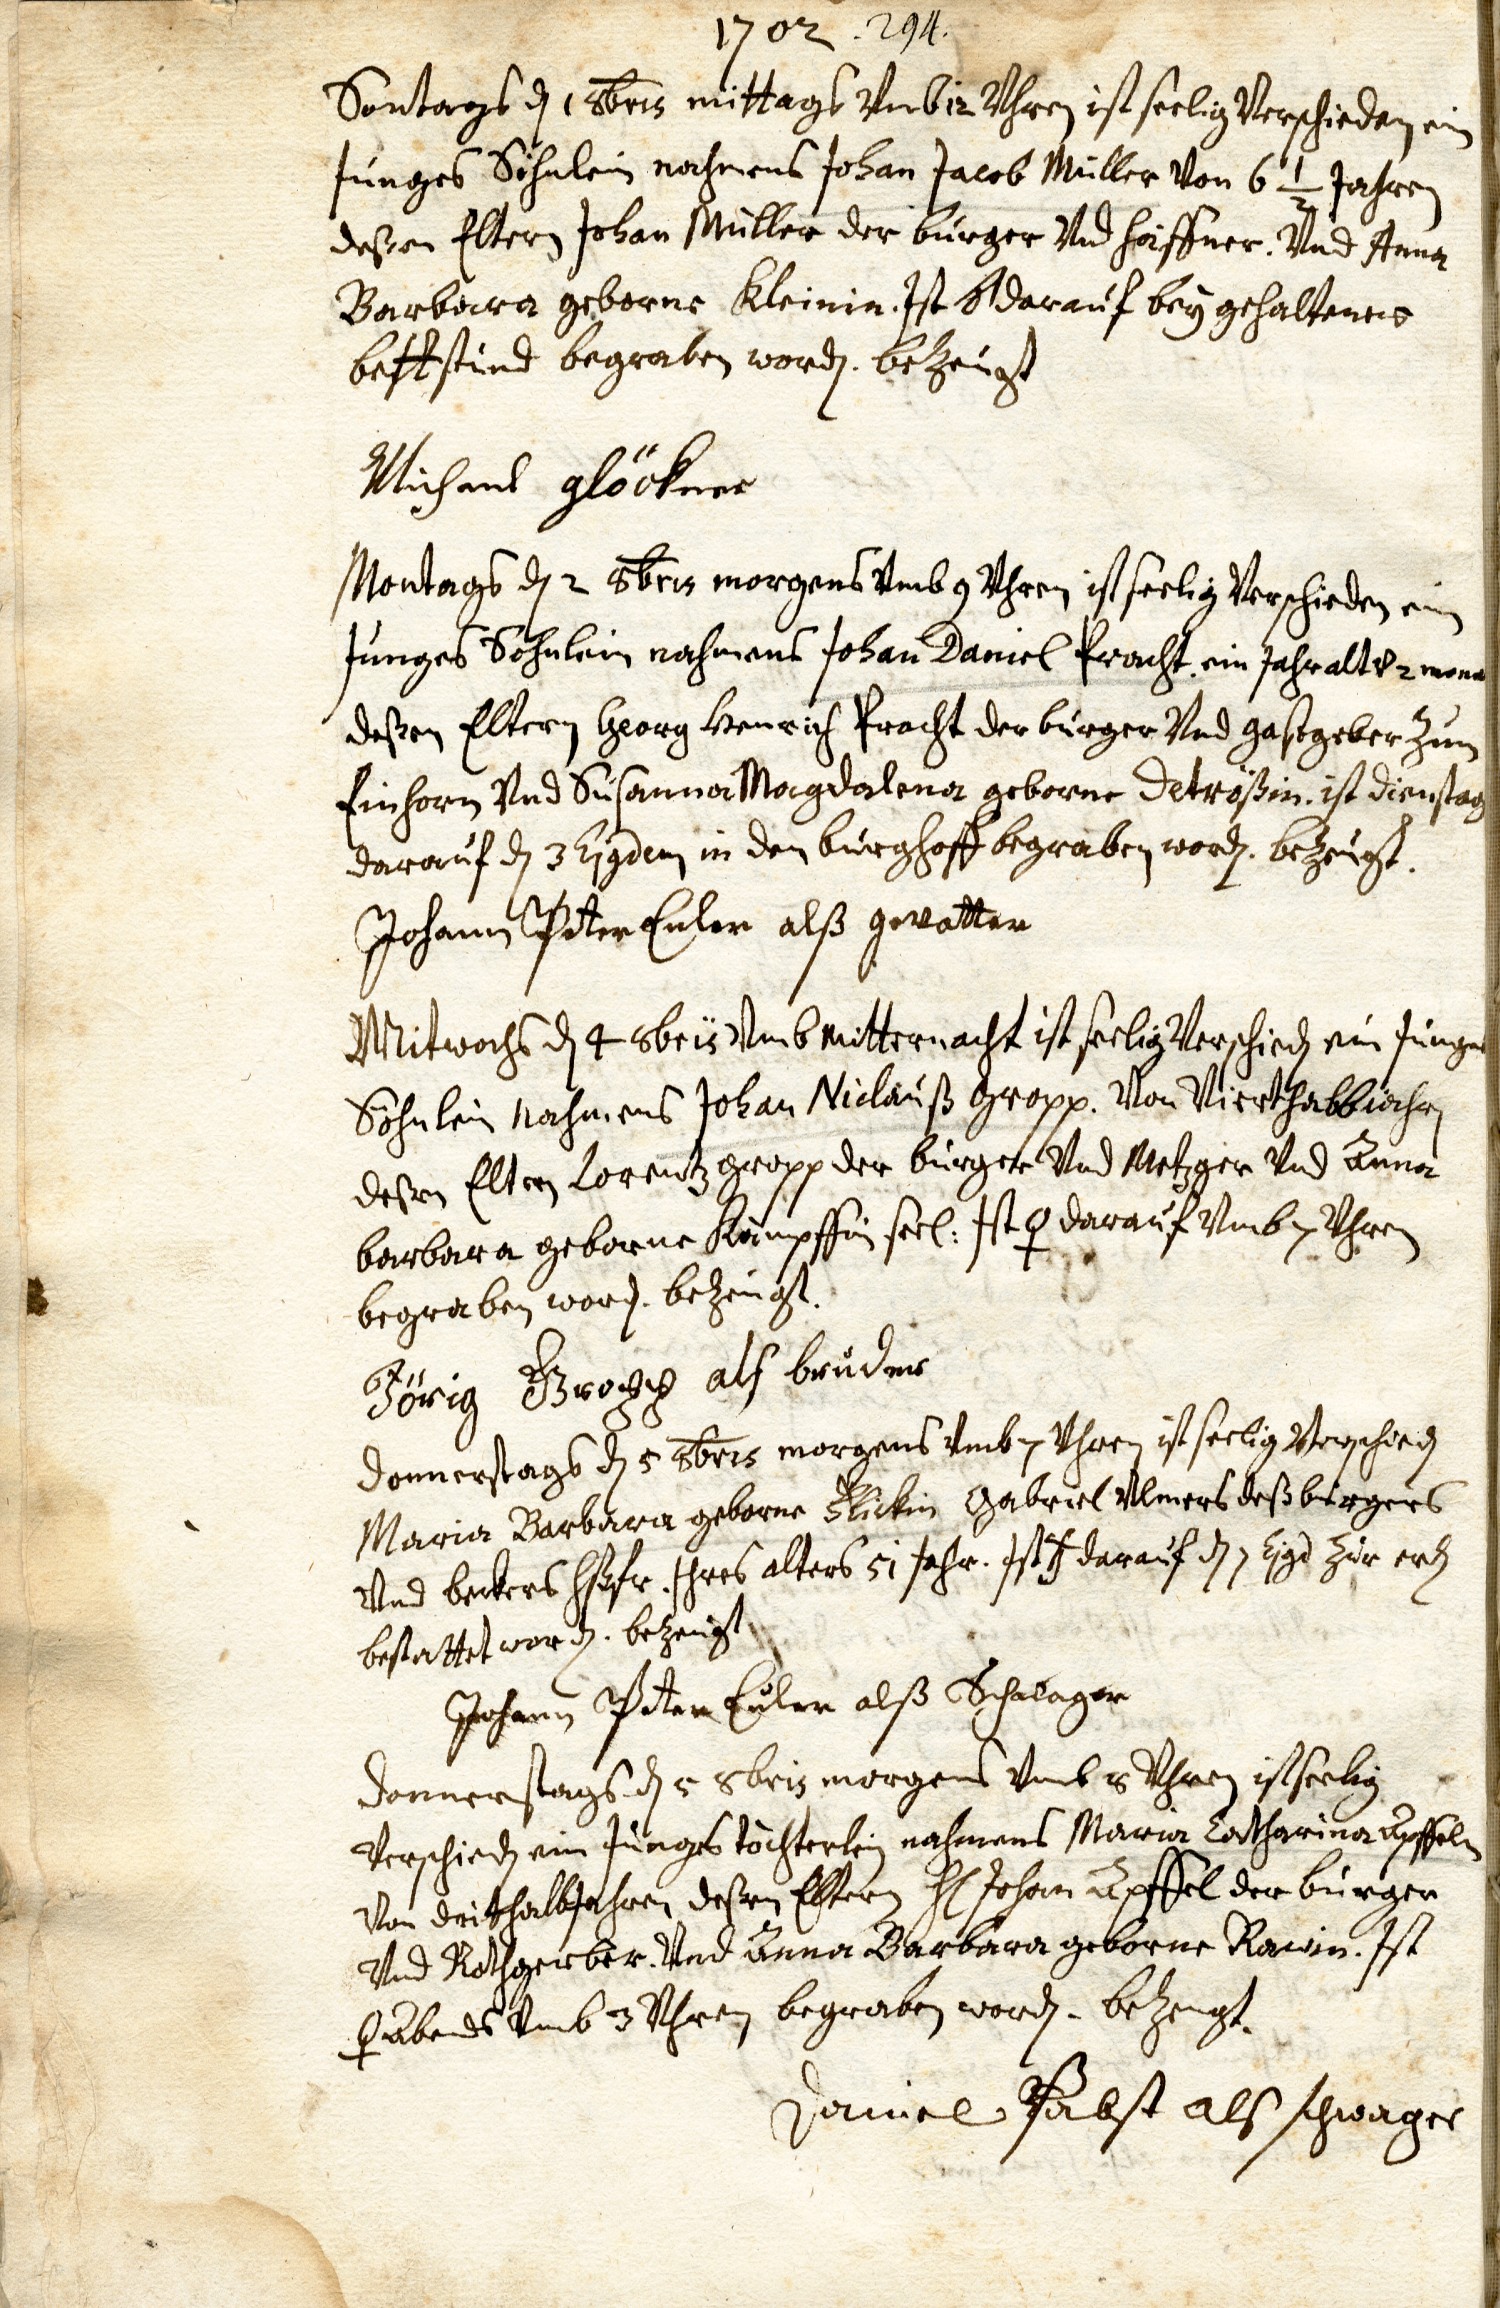 1702. 294.
Sontags dn 1 8bris mittags Vmb 12 Vhren ist seelig Verschieden ein
Junges Söhnlein nahmens Johan Jacob Müller Von 6 1/2 Jahren
deßen Eltern Johan Müller der burger Vnd häffner. Vnd Anna
Barbara geborne Kleinin. Ist darauf bey gehaltener
bettstund begraben word. bezeugt
Michael glöckner
Montags dn 2 8bris morgens Vmb 9 Vhren ist seelig Verschieden ein
Junges Söhnlein nahmens Johan Daniel Pracht. ein Jahr alt 2 mona
deßen Eltern Georg Henrich Pracht der burger Vnd gastgeber zum
Einhorn Vnd Susanna Magdalena geborne Detrößin. ist dienstag
darauf dn 3 Ejgdem in den burghoff begraben word. bezeugt.
Johann Peter Euler alß gevatter
Mitwochs dn 4 8bris Vmb Mitternacht ist seelig Verschied ein Junges
Söhnlein nahmens Johan Niclauß Gropp. Von Vierthalb jahrn
deßen Eltern Lorentz gropp der burger Vnd Metzger Vnd Anna
barbara geborne Kämpffin seel: Ist ♀ darauf Vmb 7 Vhren
begraben word. bezeugt.
Jörig Gropp als bruder
Donnerstags dn 5 8bris morgens Vmb 7 Vhren ist seelig Verschied
Maria Barbara geborne Flickin Gabriel Ulmers deß burgers
Vnd beckers hßfr. Ihres alters 51 Jahr. Ist darauf dn 7 Ejgd zur erd
bestattet word. bezeugt
Johann Peter Euler alß Schwager
Donnerstags dn 5 8bris morgens Vmb 8 Vhren ist seelig
Verschied ein Junges töchterlein nahmens Maria Catharina Äpffeln
Von drithalb Jahren deßen Eltern H Johan Äpffel der burger
Vnd Rothgerber. Vnd Anna Barbara geborne Rauin. Ist
♀ Abends Vmb 3 Vhren begraben word. bezeugt.
Daniel Pabst als schwager